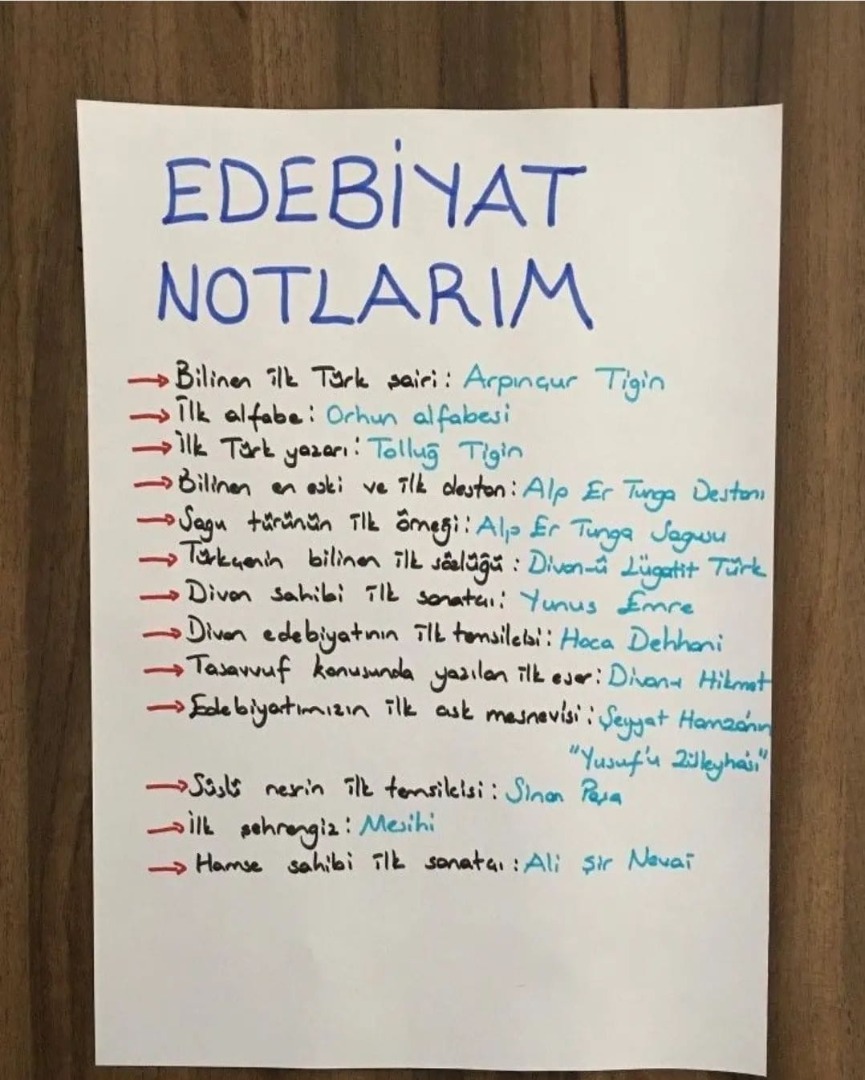 EDEBİYAT
NOTLARIM
→ Bilinen ilk Türk şairi: Arpınçur Tigin
→ İlk alfabe: Orhun alfabesi
→ İlk Türk yazarı: Tolluğ Tigin
→ Bilinen en eski ve ilk destan: Alp Er Tunga Destanı
→ Sagu türünün ilk örneği: Alp Er Tunga Sagusu
→ Türkçenin bilinen ilk sözlüğü: Divan-ü Lügatit Türk
→ Divan sahibi ilk sanatçı: Yunus Emre
→ Divan edebiyatının ilk temsilcisi: Hoca Dehhani
→ Tasavvuf konusunda yazılan ilk eser: Divan-ı Hikmet
→ Edebiyatımızın ilk aşk mesnevisi: Şeyyat Hamza'nın
"Yusuf'u Züleyhası"
→ Süslü nesrin ilk temsilcisi: Sinan Paşa
→ İlk şehrengiz: Mesihi
→ Hamse sahibi ilk sanatçı: Ali Şir Nevai